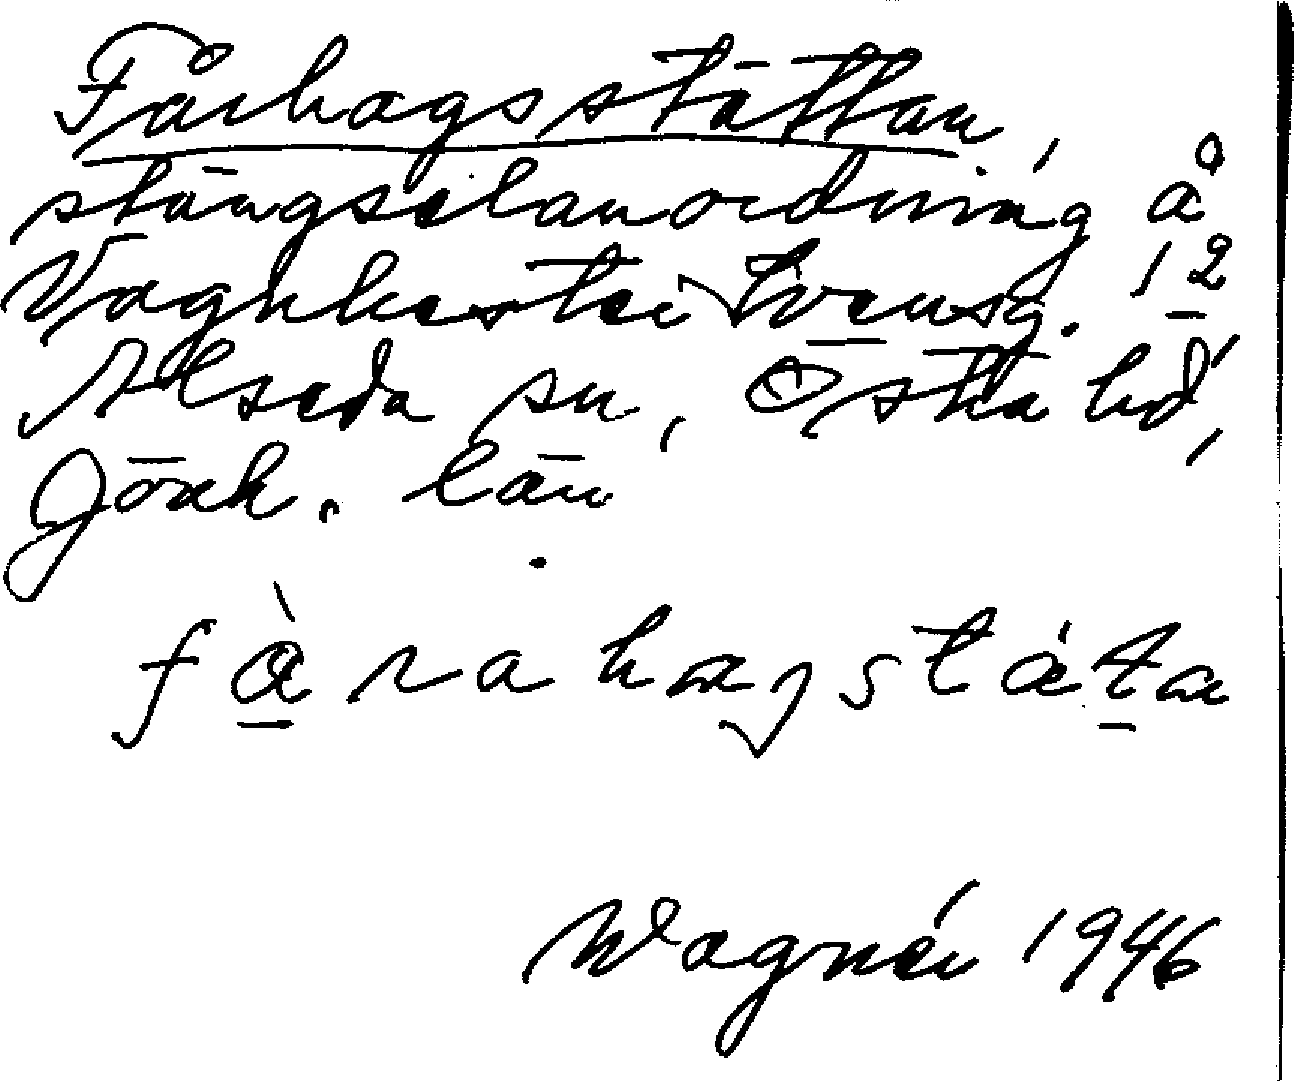 Fårhagsstättan,
stängselanordning å
Vaghkester Svensg. 12
Alseda sn, Östra hd,
Jönk. län
fàrahagstáta
Wagnér 1946